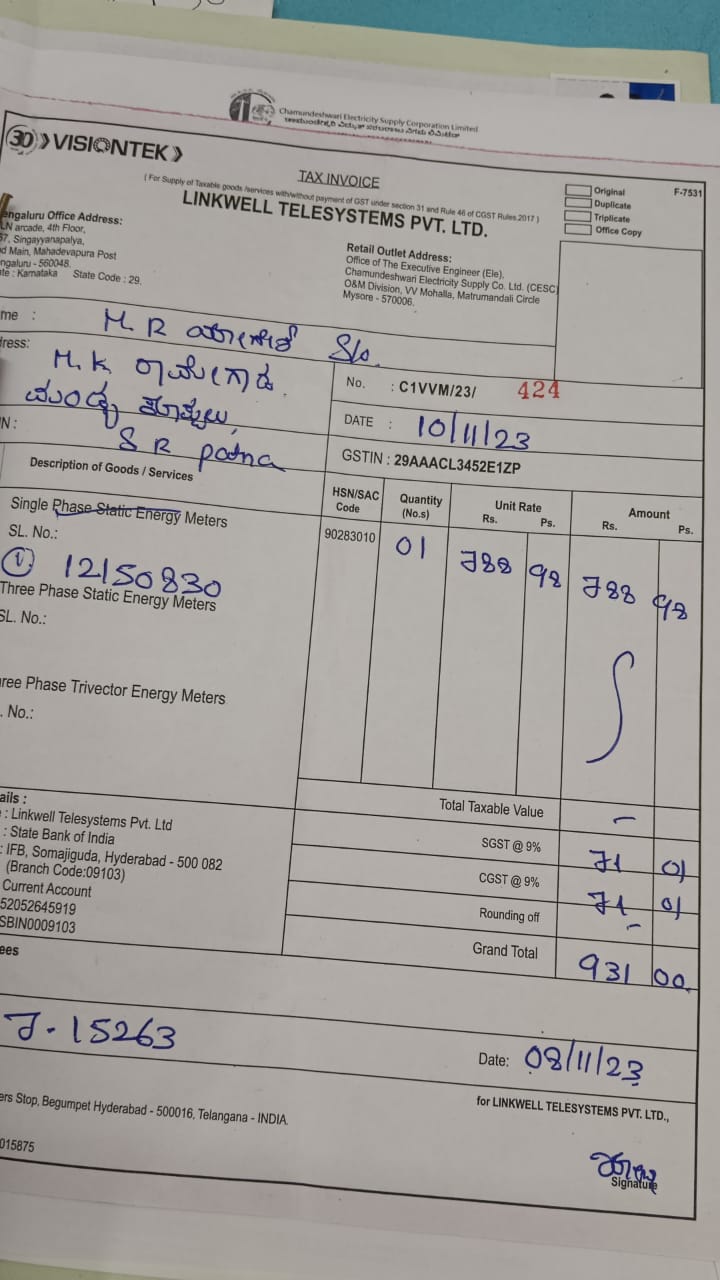 Chamundeshwari Electricity Supply Corporation Limited
30 VISIONTEK
TAX INVOICE
( For Supply of Taxable goods /services with/without payment of GST under section 31 and Rule 46 of CGST Rules 2017 )
LINKWELL TELESYSTEMS PVT. LTD.
Original
F-7531
Duplicate
Triplicate
Office Copy
engaluru Office Address:
N arcade, 4th Floor,
67, Singayyanapalya,
d Main, Mahadevapura Post
ngaluru - 560048.
te : Karnataka State Code : 29.
Retail Outlet Address:
Office of The Executive Engineer (Ele),
Chamundeshwari Electricity Supply Co. Ltd. (CESC)
O&M Division, VV Mohalla, Matrumandali Circle
Mysore - 570006.
me : M. R S/o.
dress: M. K. ರಾಮೇಗೌಡ
No. : C1VVM/23/ 424
DATE : 10/11/23
N : S R patna
GSTIN : 29AAACL3452E1ZP
Description of Goods / Services
HSN/SAC Code
Quantity (No.s)
Unit Rate Rs. Ps.
Amount Rs. Ps.
Single Phase Static Energy Meters
90283010 01 788 98 788 98
SL. No.:
1 12150830
Three Phase Static Energy Meters
SL. No.:
ree Phase Trivector Energy Meters
. No.:
Total Taxable Value -
SGST @ 9% 71 01
CGST @ 9% 71 01
Rounding off -
Grand Total 931 00
ails :
: Linkwell Telesystems Pvt. Ltd
: State Bank of India
: IFB, Somajiguda, Hyderabad - 500 082
(Branch Code:09103)
Current Account
52052645919
SBIN0009103
ees
J-15263
Date: 08/11/23
for LINKWELL TELESYSTEMS PVT. LTD.,
ers Stop, Begumpet Hyderabad - 500016, Telangana - INDIA.
015875
Signature